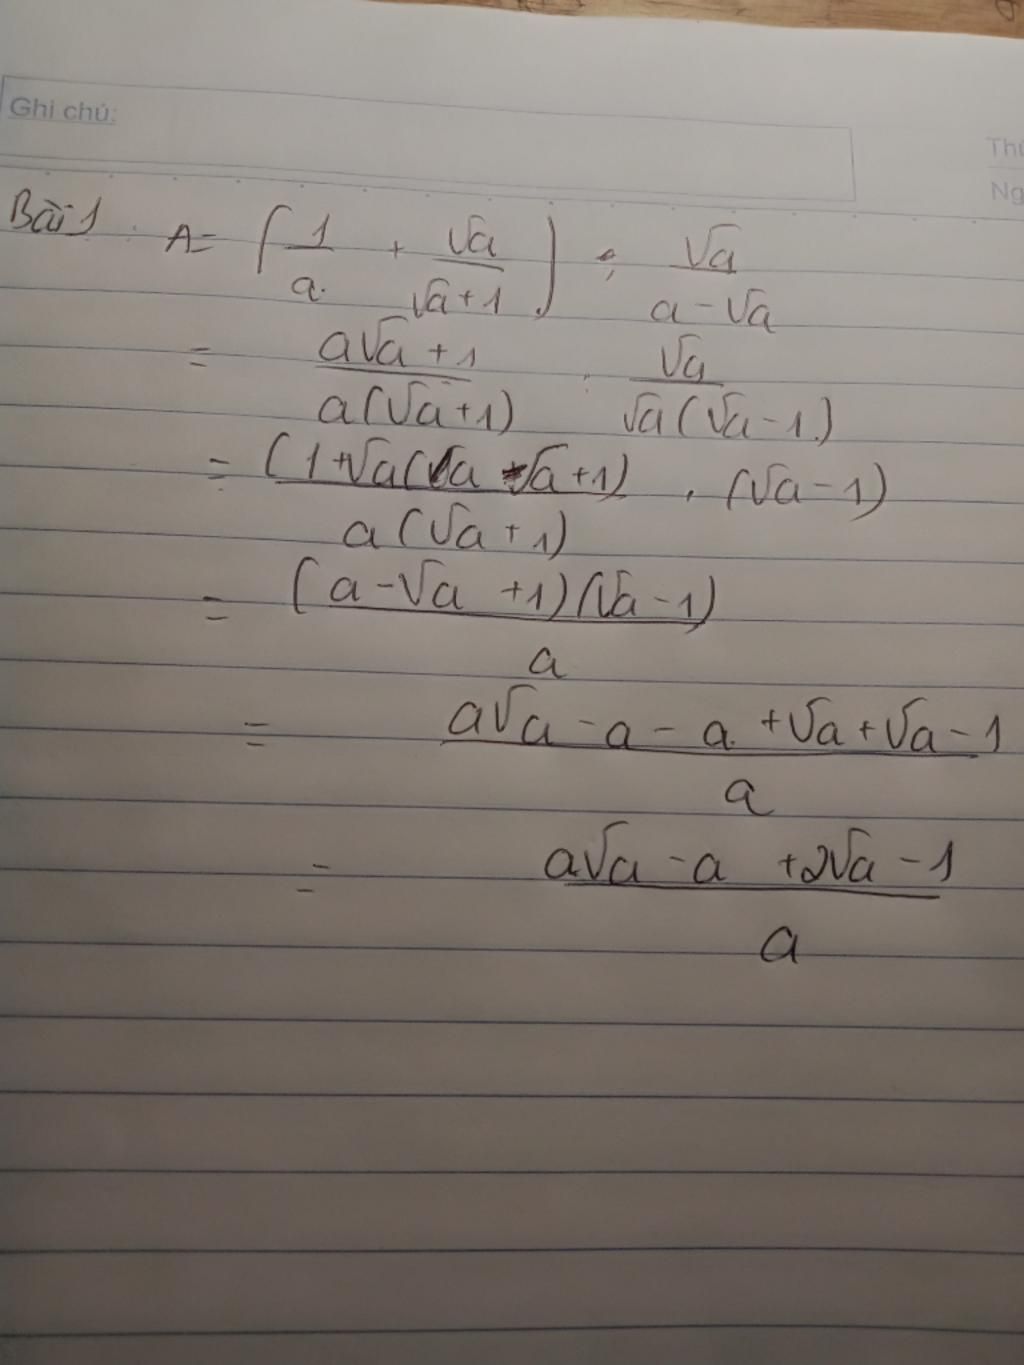 Ghi chú:
Thứ
Ng
Bài 1 A = (1/a + √a/(√a+1)) : √a/(a-√a)
= (a√a + 1)/(a(√a+1)) : √a/(√a(√a-1))
= (1+√a)(a-√a+1)/(a(√a+1)) . (√a-1)
= (a-√a+1)(√a-1)/a
= (a√a - a - a + √a + √a - 1)/a
= (a√a - a + 2√a - 1)/a